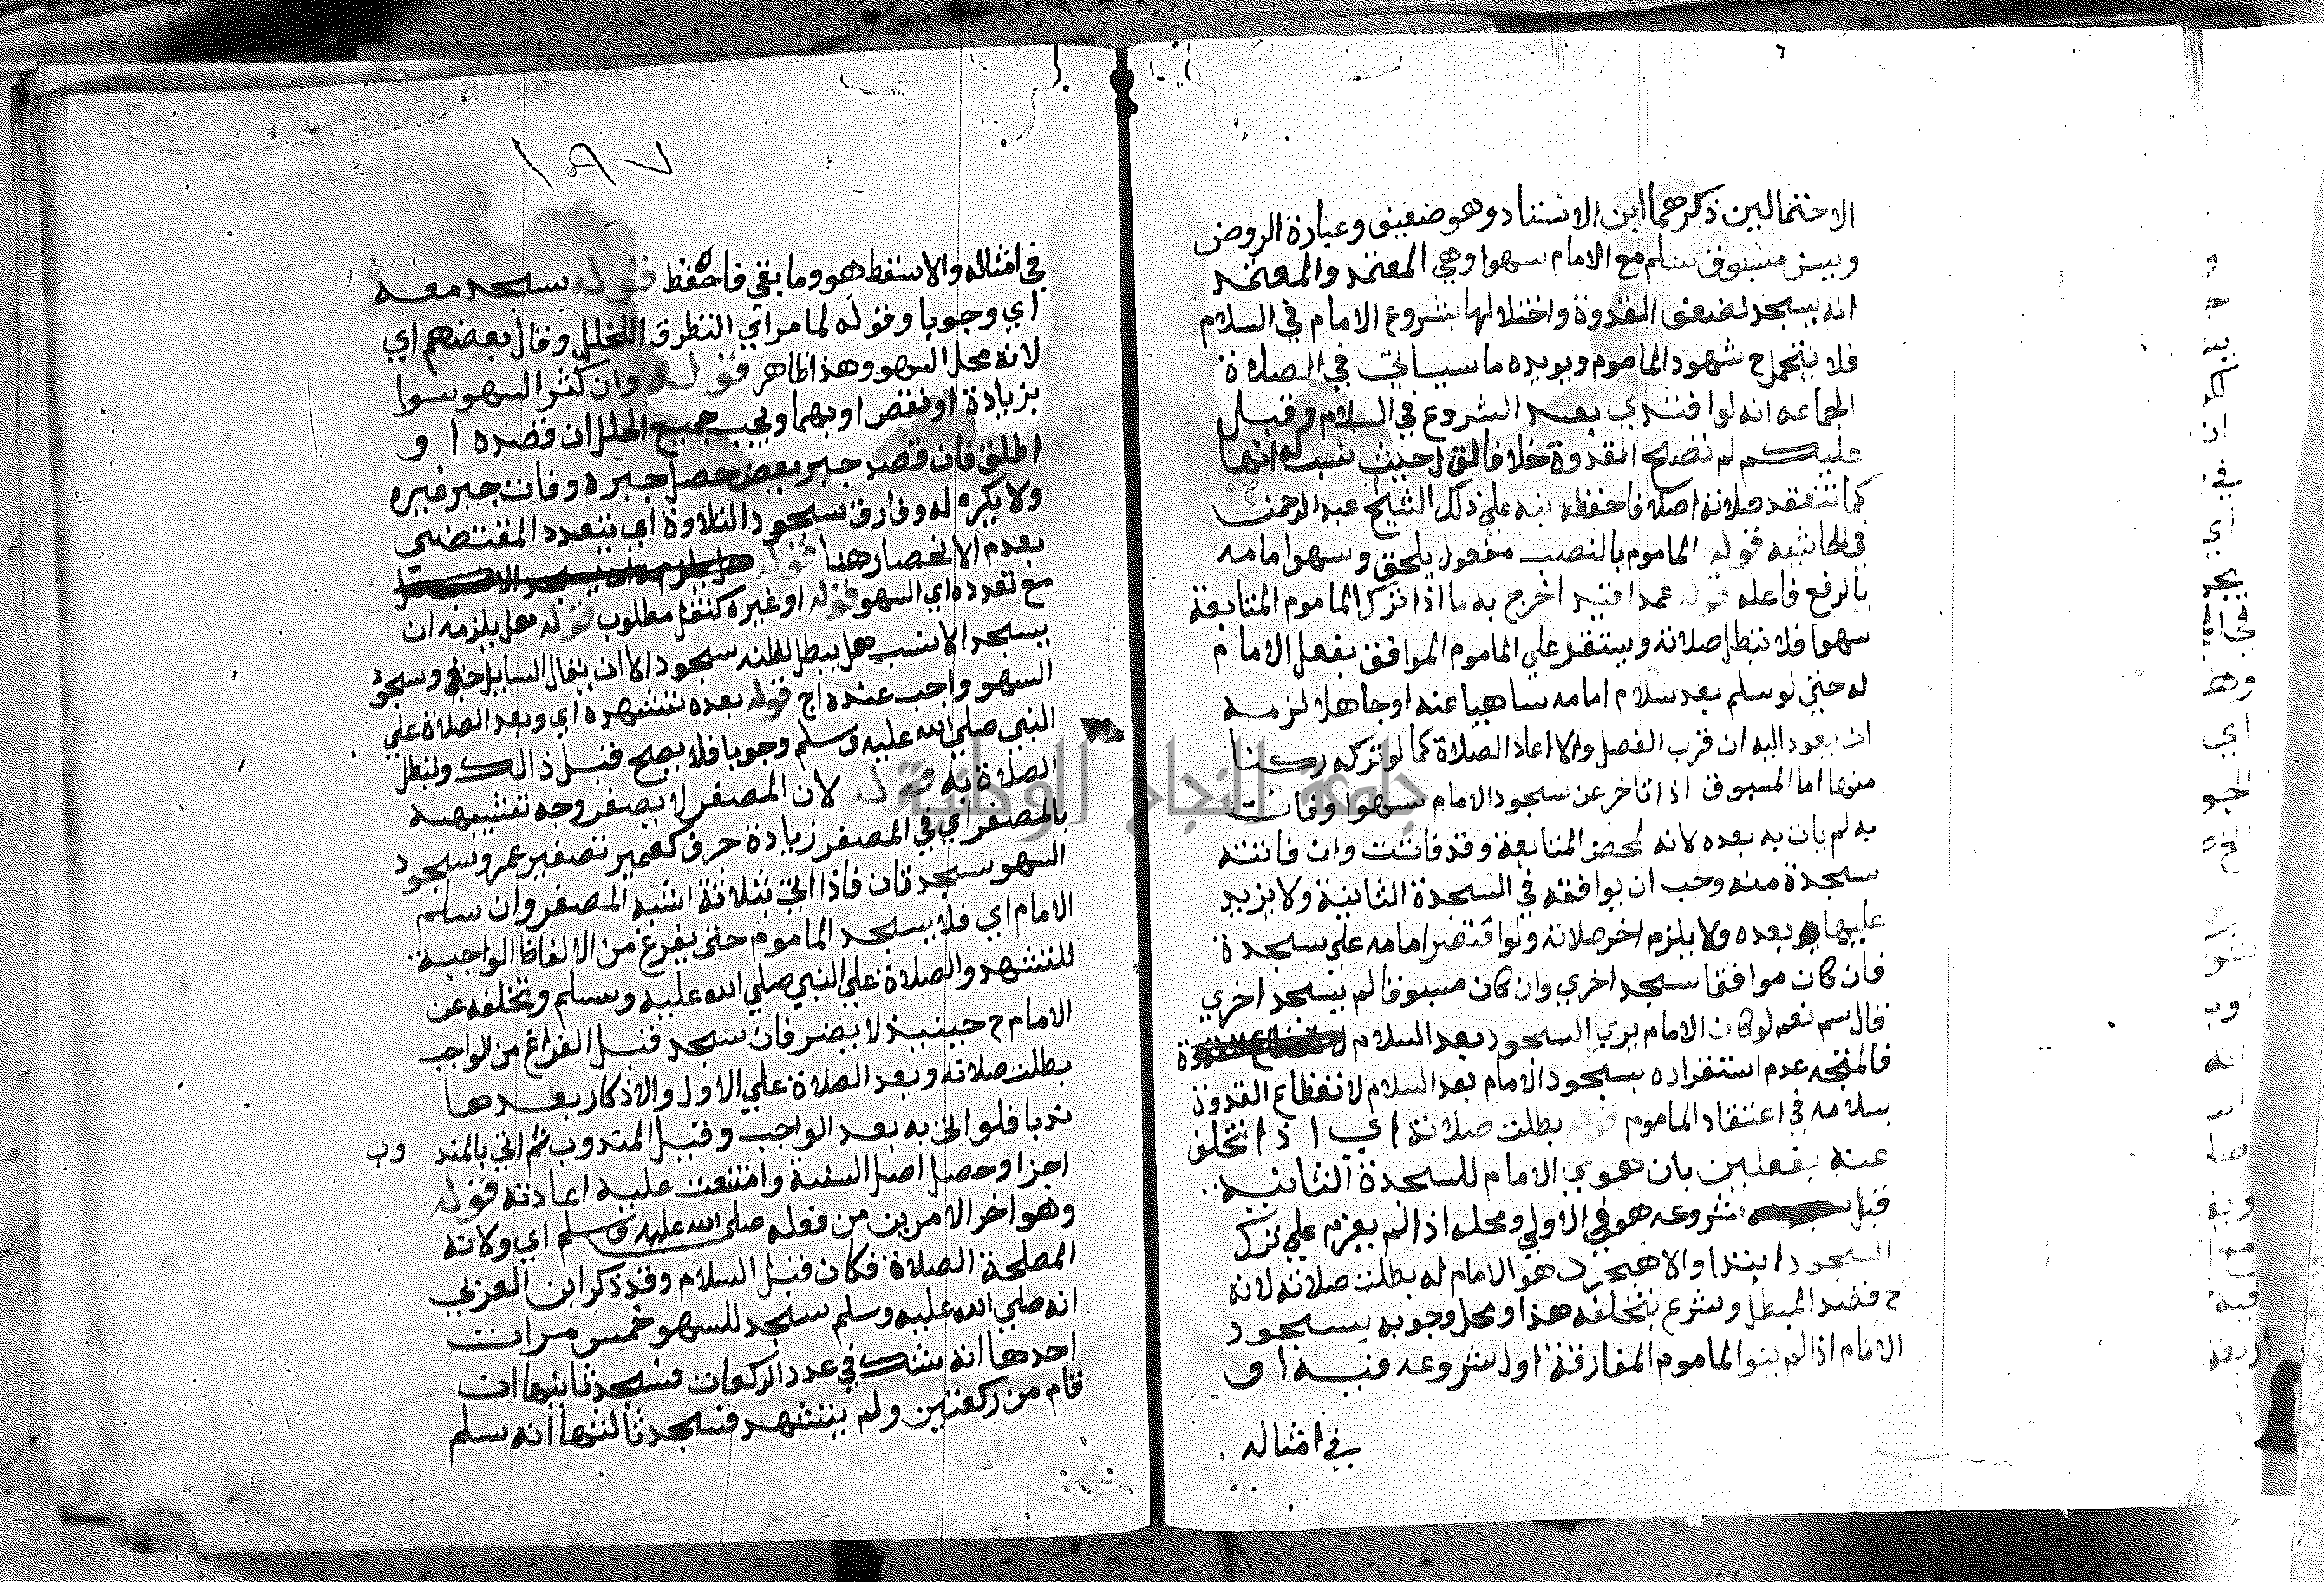 الاحتمالين ذكرهما ابن الاستاد وهو ضعيف وعبارة الروض
ويسن مسبوق سلم مع الامام سهوا وهي المعتمد والمعتمد
انه يسجد لضعف القدوة واختلالها بشروع الامام في السلام
فلا يتحمل ح سهو الماموم ويويده ما سياتي في الصلاة
الجماعه انه لو اقتدي بعد الشروع في السلام وقبل
عليكم لم تصح القدوة خلافا لق ل حيث
كما تنعقد صلاته اصلا فاحفظه نبه علي ذلك الشيخ عبد الرحمن
في الحاشيه قوله الماموم بالنصب مفعول يلحق وسهو امامه
بالرفع فاعله قوله عمدا قيد اخرج به ما اذا ترك الماموم المتابعة
سهوا فلا تبطل صلاته ويستقر علي الماموم الموافق بفعل الامام
له حتي لو سلم بعد سلام امامه ساهيا عنه او جاهلا لزمه
ان يعود اليه ان قرب الفصل والا اعاد الصلاة كما لو ترك ركنا
منها اما المسبوق اذا تاخر عن سجود الامام سهوا وفات
به لم يات به بعده لانه لمحض المتابعة وقد فاتت وان فاتته
سجدة منه وجب ان يوافقه في السجدة الثانية ولا يزيد
عليها بعده ولا يلزم اخر صلاته ولو اقتصر امامه علي سجدة
فان كان موافقا سجد اخري وان كان مسبوقا لم يسجد اخري
قال سم نعم لو كان الامام يري السجود بعد السلام
فالمتجه عدم استقراره بسجود الامام بعد السلام لانقطاع القدوة
بسلامه في اعتقاد الماموم قوله بطلت صلاته اي اذا تخلف
عنه بفعلين بان هوي الامام للسجدة الثانية
قبل شروعه هو في الاولي ومحله اذا لم يعزم علي ترك
السجود ابتدا والا هوي الامام له بطلت صلاته لانه
ح قصد المبطل وشرع بتخلفه هذا ومحل وجوبه بسجود
الامام اذا لم ينو الماموم المفارقة اول شروعه فيه او
في امثاله
١٥٧
في امثاله والا سقط هو وما بقي فاحفظ قوله سجد معه
اي وجوبا وقوله لما مر اي التطرق الخلل وقال بعضهم اي
لانه محل السهو وهذا ظاهر قوله وان كثر السهو سوا
بزيادة او نقص او بهما ويجب جميع الخلل ان قصده او
اطلق فان قصد جبر بعض حصل جبره وفات جبر غيره
ولا يكره له وفارق سجود التلاوة اي بتعدد المقتضي
بعدم الانحصار هنا قوله
مع تعدده اي السهو قوله او غيره كنفل مطلوب قوله هل يلزمه ان
يسجد الانسب هل يبطل لطنه سجود الا ان يقال السايل حنفي وسجود
السهو واجب عنده اج قوله بعده تشهره اي وبعد الصلاة علي
النبي صلي الله عليه وسلم وجوبا فلا يصح قبل ذالك وتبطل
الصلاة به قوله لان المصغر لا يصغر وجه تشبيهه
بالمصغر اي في المصغر زيادة حرف كعمير تصغير عمر وسجود
السهو سجدتان فاذا اتي بثلاثة اشبه المصغر وان سلم
الامام اي فلا يسجد الماموم حتي يفرغ من الالفاظ الواجبة
للتشهد والصلاة علي النبي صلي الله عليه وسلم وتخلفه عن
الامام ح حينيذ لا يضر فان سجد قبل الفراغ من الواجب
بطلت صلاته وبعد الصلاة علي الاول والاذكار بعدها
ندبا فلو اتي به بعد الواجب وقبل المندوب ثم اتي بالمند وب
اجزا وحصل اصل السنة وامتنعت عليه اعادته قوله
وهو اخر الامرين من فعله صلي الله عليه وسلم اي ولانه
المصلحة الصلاة فكان قبل السلام وقد ذكر ابن العربي
انه صلي الله عليه وسلم سجد للسهو خمس مرات
احدها انه شك في عدد الركعات فسجد ثانيها ان
قام من ركعتين ولم يتشهد فسجد ثالثها انه سلم
جامعة النجاح الوطنية